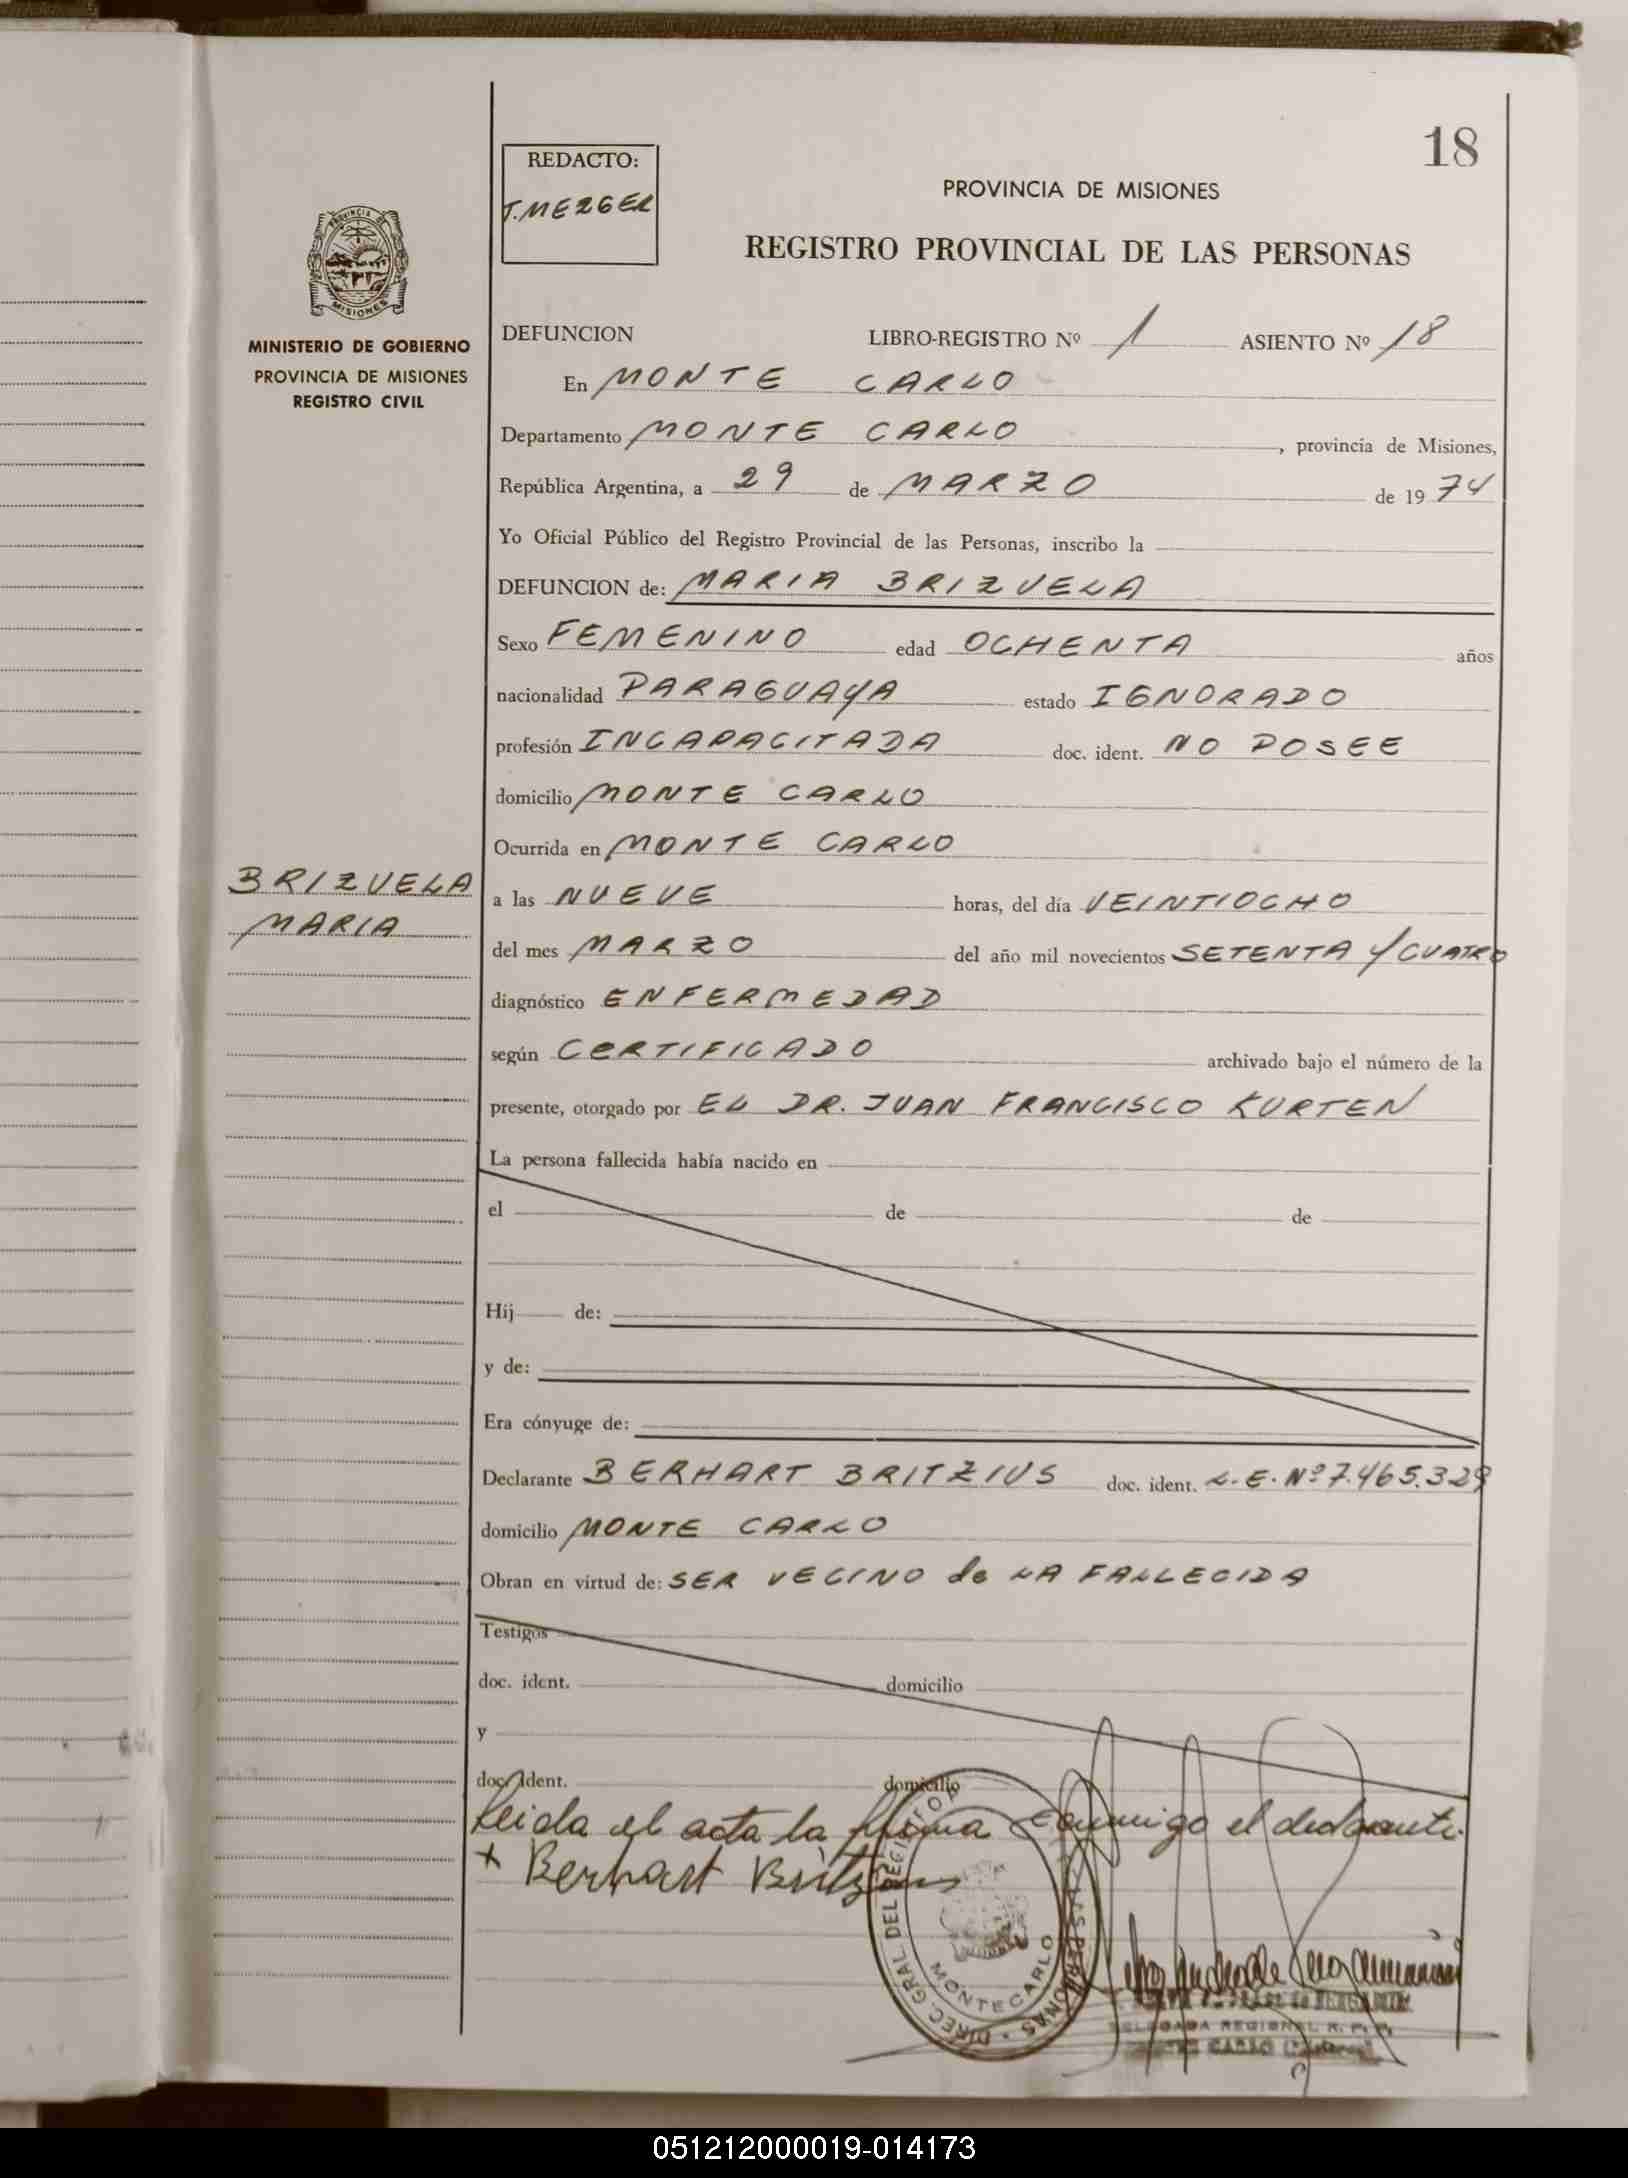 18
REDACTO:
T. MEZGER
PROVINCIA DE MISIONES
REGISTRO PROVINCIAL DE LAS PERSONAS
PROVINCIA DE
MISIONES
MINISTERIO DE GOBIERNO
PROVINCIA DE MISIONES
REGISTRO CIVIL
DEFUNCION LIBRO-REGISTRO Nº 1 ASIENTO Nº 18
En MONTE CARLO
Departamento MONTE CARLO, provincia de Misiones,
República Argentina, a 29 de MARZO de 1974
Yo Oficial Público del Registro Provincial de las Personas, inscribo la
DEFUNCION de: MARIA BRIZUELA
Sexo FEMENINO edad OCHENTA años
nacionalidad PARAGUAYA estado IGNORADO
profesión INCAPACITADA doc. ident. NO POSEE
domicilio MONTE CARLO
Ocurrida en MONTE CARLO
BRIZUELA
MARIA
a las NUEVE horas, del día VEINTIOCHO
del mes MARZO del año mil novecientos SETENTA Y CUATRO
diagnóstico ENFERMEDAD
según CERTIFICADO archivado bajo el número de la
presente, otorgado por EL DR. JUAN FRANCISCO KURTEN
La persona fallecida había nacido en
el de de
Hij de:
y de:
Era cónyuge de:
Declarante BERHART BRITZIUS doc. ident. L.E. Nº 7.465.329
domicilio MONTE CARLO
Obran en virtud de: SER VECINO de LA FALLECIDA
Testigos
doc. ident. domicilio
y
doc. ident. domicilio
Leida el acta la firma conmigo el declarante.
+ Berhart Britzius
DIREC. GRAL DEL REGIST. PERSONAS
MONTECARLO
DELEGADA REGIONAL R. P. P.
MONTE CARLO (Misiones)
051212000019-014173